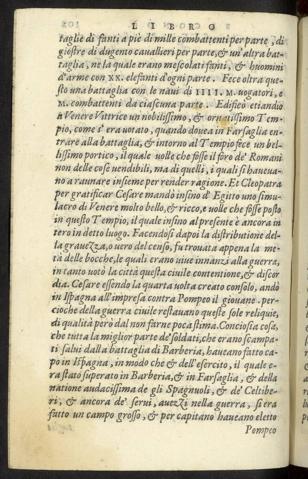 LIBRO
taglie di fanti a piè di mille combattenti per parte, di
giostre di dugento cavallieri per parte, & un'altra bat-
taglia, ne la quale erano mescolati fanti, & huomini
d'arme con XX. elefanti d'ogni parte. Fece oltra que-
sto una battaglia con le navi di IIII. M. vogatori, e
M. combattenti da ciascuna parte. Edificò etiandio
a Venere Vittrice un nobilissimo, & ornatissimo Tem-
pio, come s'era votato, quando dovea in Farsaglia en-
trare alla battaglia, & intorno al Tempio fece un bel-
lissimo portico, il quale volle che fosse il foro de' Romani
non delle cose vendibili, ma di quelli, i quali s'haveua-
no a raunare insieme per render ragione. Et Cleopatra
per gratificar Cesare mandò insino d'Egitto uno simu-
lacro di Venere molto bello, & ricco, e volle che fosse posto
in questo Tempio, il quale insino al presente è ancora in
tero in detto luogo. Facendosi dapoi la distributione del-
la gravezza, o vero del censo, fu trovata appena la me-
tà delle bocche, le quali erano vive innanzi alla guerra,
in tanto votò la città questa civile contentione, & discor
dia. Cesare essendo la quarta volta creato consolo, andò
in Ispagna all'impresa contra Pompeo il giovane. per-
cioche della guerra civile restavano queste sole reliquie,
di qualità però dal non farne poca stima. Conciosia cosa,
che tutta la miglior parte de'soldati, che erano scampa-
ti salvi dalla battaglia di Barberia, haveano fatto ca-
po in Ispagna, in modo che & dell'esercito, il quale e-
ra stato superato in Barberia, & in Farsaglia, & della
natione audacissima de gli Spagnuoli, & de' Celtibe-
ri, & ancora de' servi, avezzi nella guerra, si era
fatto un campo grosso, & per capitano haveano eletto
Pompeo